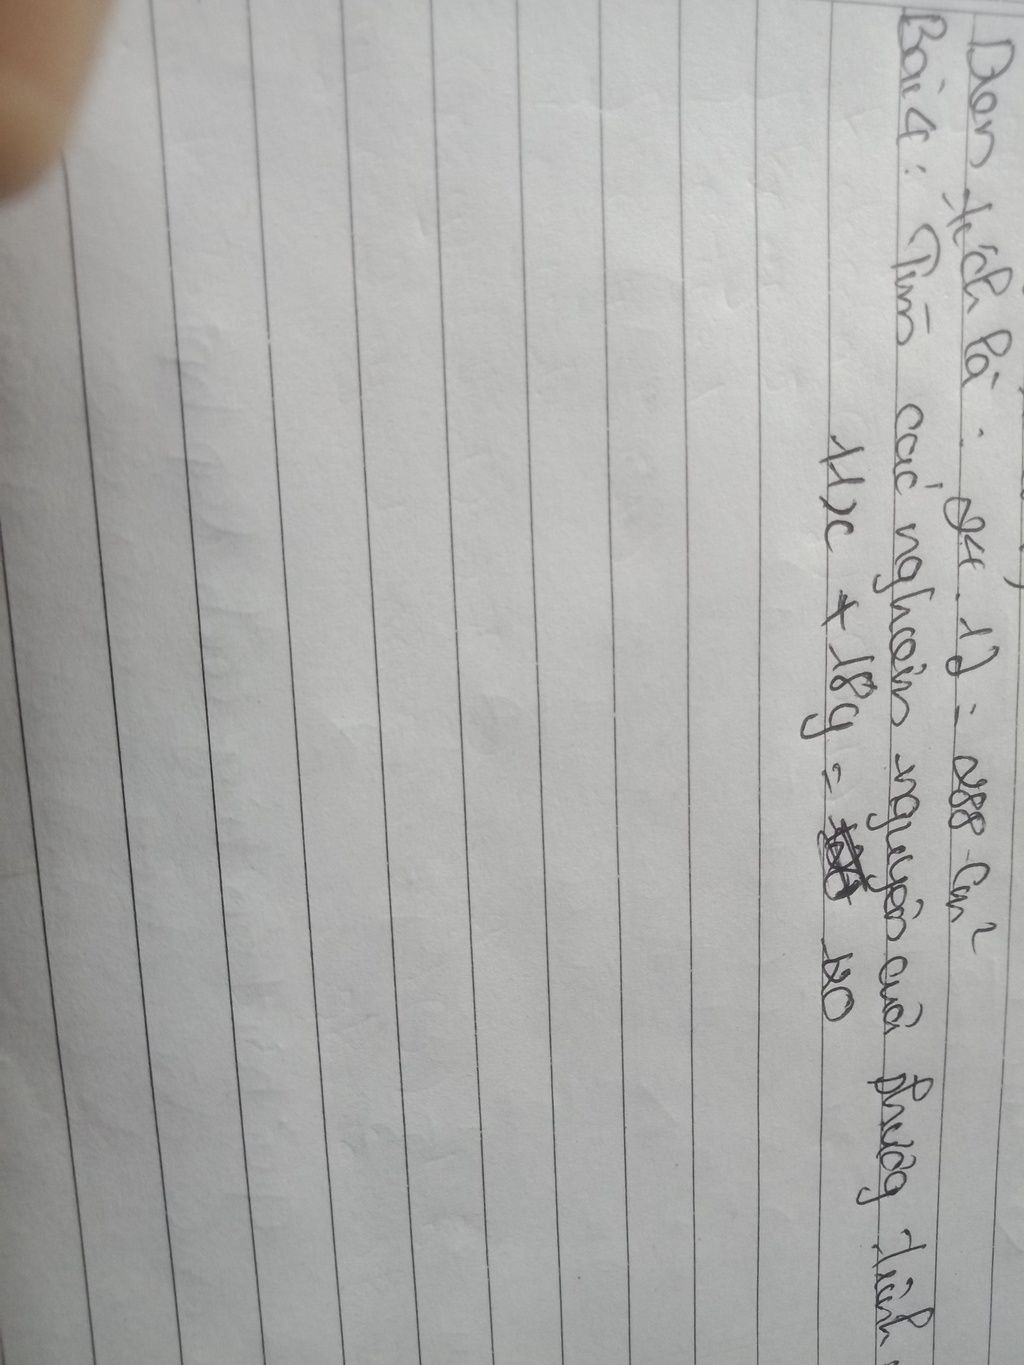 Diện tích là: 24.12 = 288 Cm²
Bài 4: Tìm các nghiệm nguyên của phương trình
11x + 18y = 120